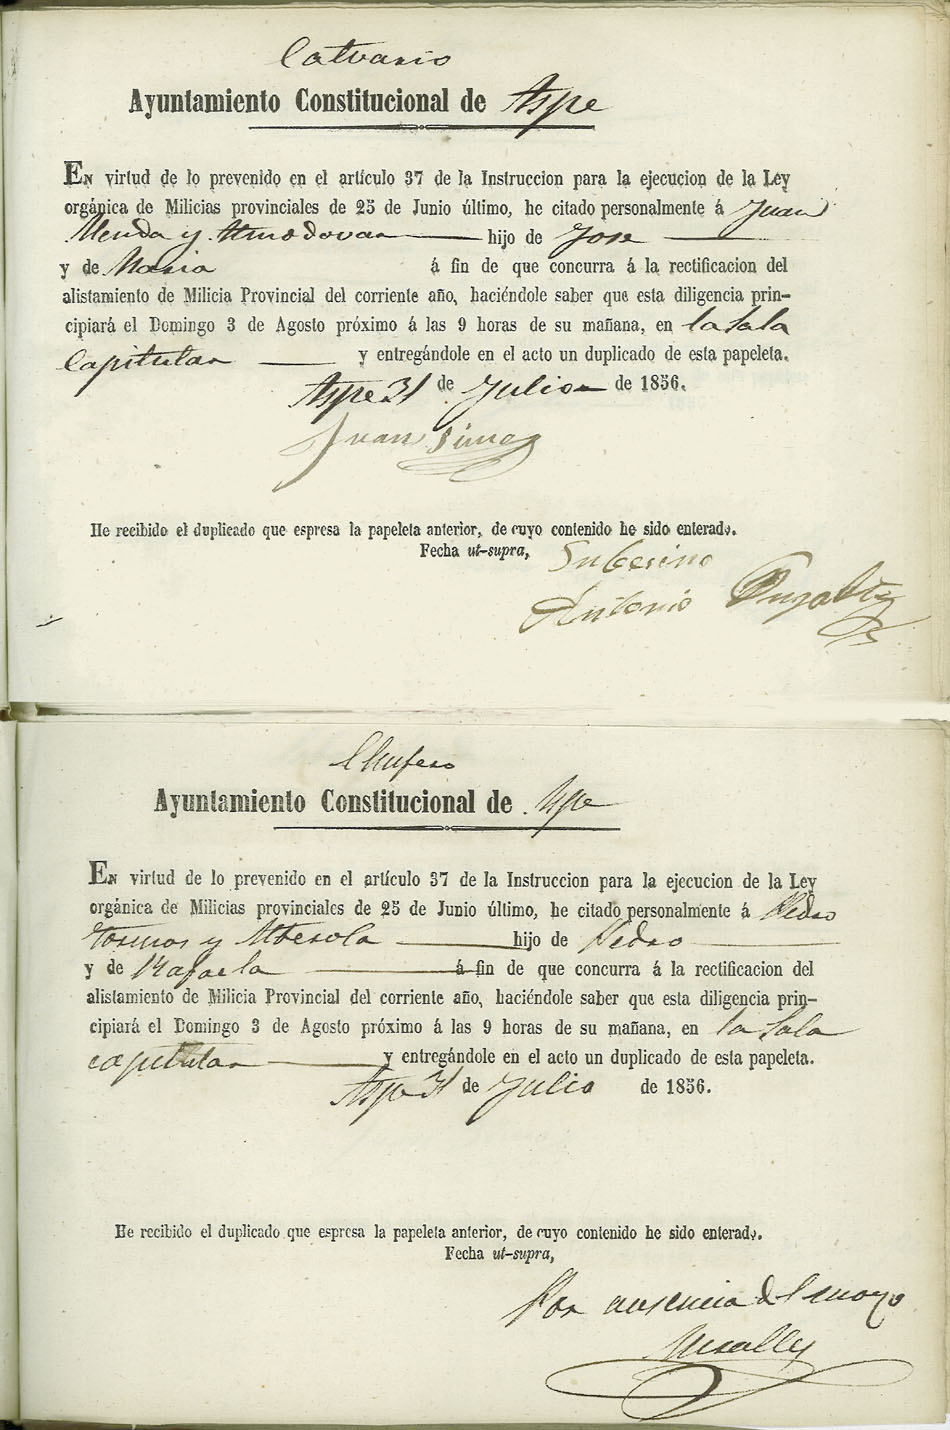 Calvario
Ayuntamiento Constitucional de Aspe
En virtud de lo prevenido en el artículo 37 de la Instruccion para la ejecucion de la Ley
orgánica de Milicias provinciales de 25 de Junio último, he citado personalmente á Juan
y Almodovar hijo de Jose
y de Maria á fin de que concurra á la rectificacion del
alistamiento de Milicia Provincial del corriente año, haciéndole saber que esta diligencia prin-
cipiará el Domingo 3 de Agosto próximo á las 9 horas de su mañana, en la Sala
Capitular y entregándole en el acto un duplicado de esta papeleta.
Aspe 31 de Julio de 1856.
Juan
He recibido el duplicado que espresa la papeleta anterior, de cuyo contenido he sido enterado.
Fecha ut-supra,
Antonio
Ayuntamiento Constitucional de Aspe
En virtud de lo prevenido en el artículo 37 de la Instruccion para la ejecucion de la Ley
orgánica de Milicias provinciales de 25 de Junio último, he citado personalmente á Pedro
y hijo de Pedro
y de Rafaela á fin de que concurra á la rectificacion del
alistamiento de Milicia Provincial del corriente año, haciéndole saber que esta diligencia prin-
cipiará el Domingo 3 de Agosto próximo á las 9 horas de su mañana, en la Sala
capitular y entregándole en el acto un duplicado de esta papeleta.
Aspe 31 de Julio de 1856.
He recibido el duplicado que espresa la papeleta anterior, de cuyo contenido he sido enterado.
Fecha ut-supra,
Por ausencia del mozo